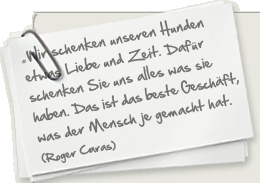 „Wir schenken unseren Hunden
etwas Liebe und Zeit. Dafür
schenken Sie uns alles was sie
haben. Das ist das beste Geschäft,
was der Mensch je gemacht hat.
(Roger Caras)